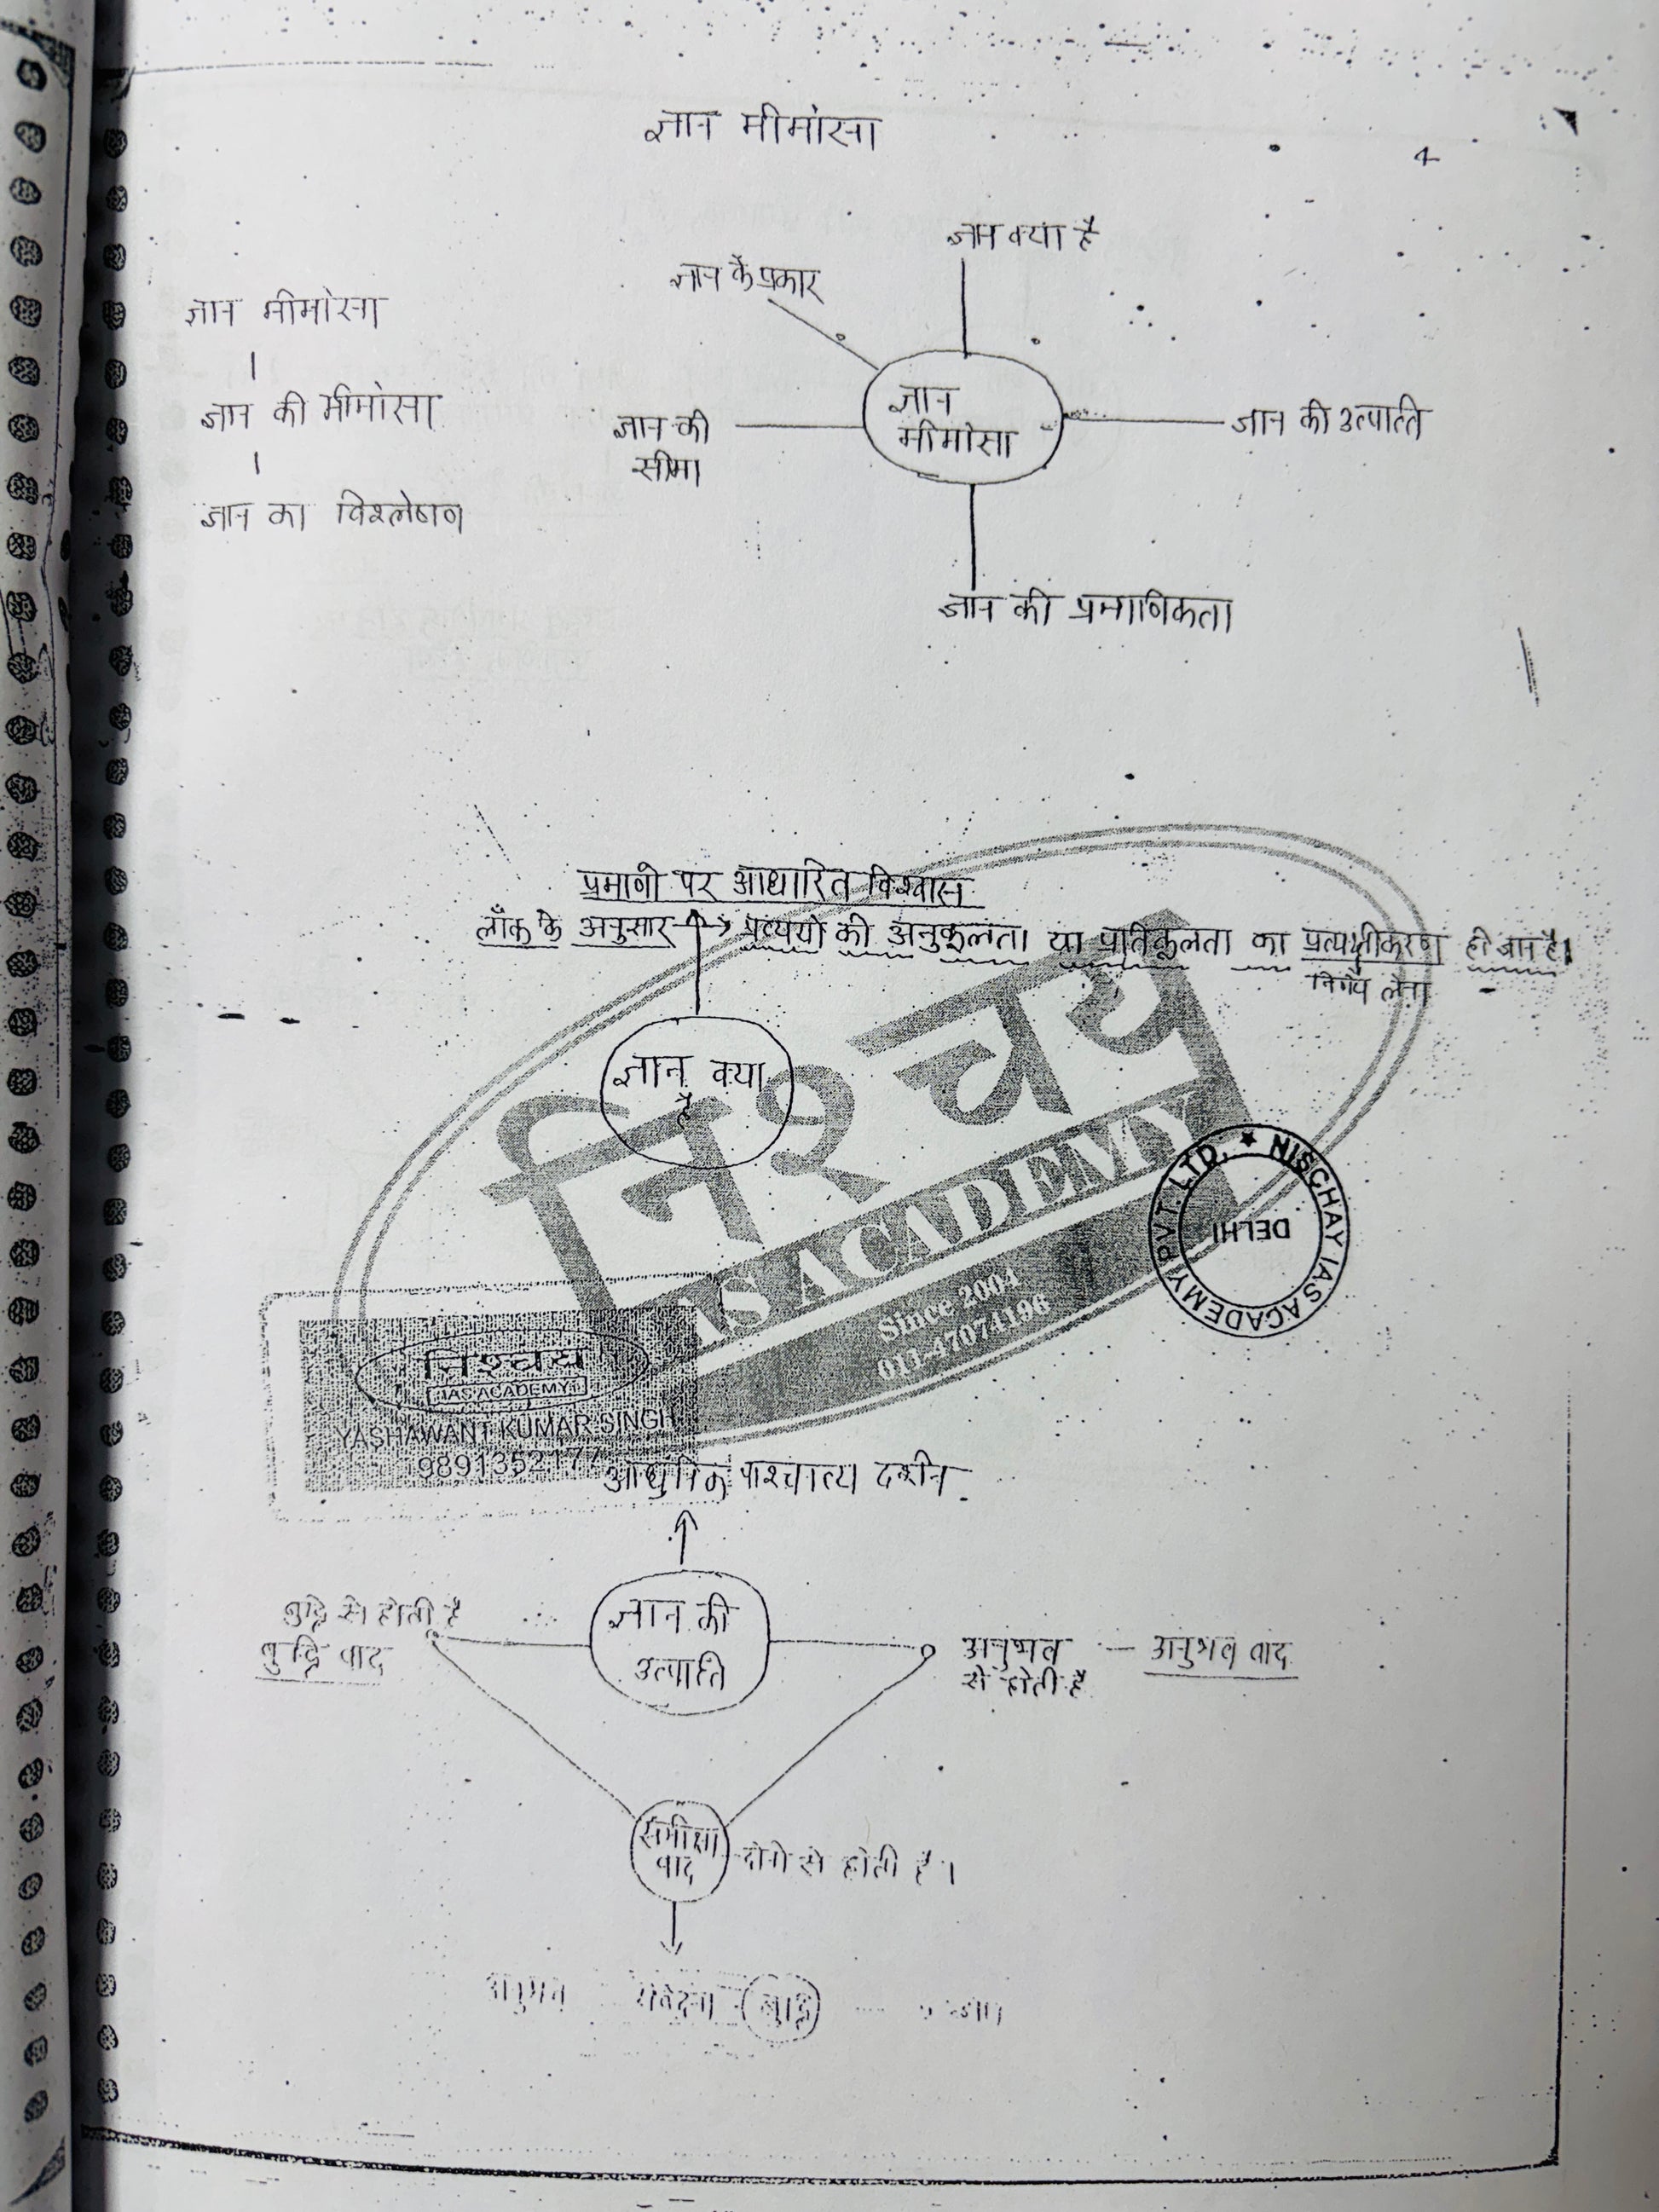 ज्ञान मीमांसा
4
ज्ञान क्या है
ज्ञान के प्रकार
ज्ञान मीमांसा
ज्ञान की मीमांसा
ज्ञान का विश्लेषण
ज्ञान की
सीमा
ज्ञान
मीमांसा
ज्ञान की उत्पत्ति
ज्ञान की प्रमाणिकता
प्रमाणो पर आधारित विश्वास
लॉक के अनुसार → प्रत्ययो की अनुकूलता या प्रतिकूलता का प्रत्यक्षीकरण ही ज्ञान है।
निर्णय लेना
ज्ञान क्या
है
निश्चय
IAS ACADEMY
Since 2004
011-47074196
NISCHAY IAS ACADEMY PVT. LTD. ★
DELHI
निश्चय
IAS ACADEMY
YASHAWANT KUMAR SINGH
9891352177
आधुनिक पाश्चात्य दर्शन
बुद्धि से होती है
बुद्धि वाद
ज्ञान की
उत्पत्ति
अनुभव — अनुभव वाद
से होती है
समीक्षा
वाद
दोनो से होती है।
अनुभव संवेदना बुद्धि ज्ञान